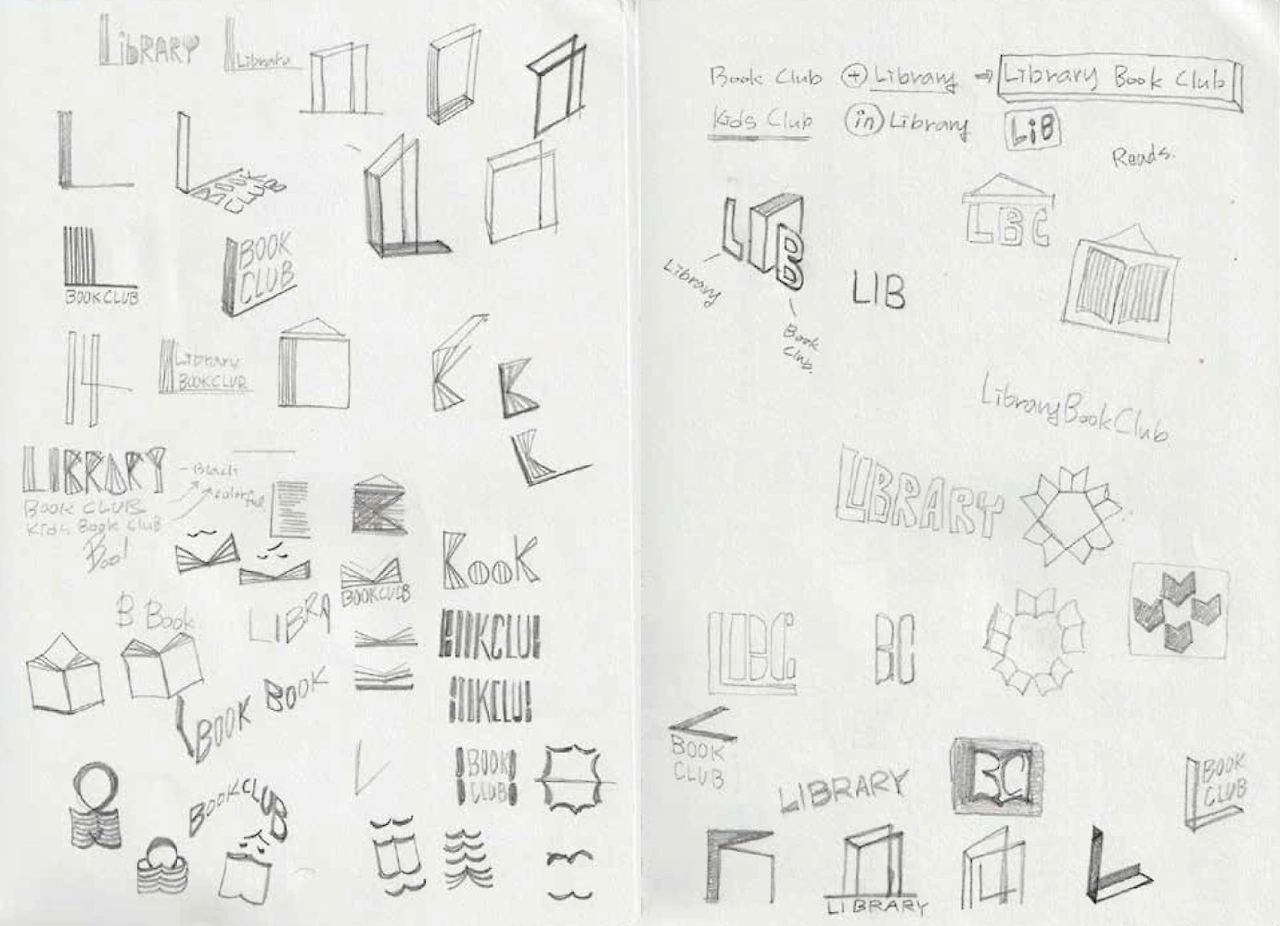 LiBRARY
Library
BOOK
CLUB
BOOKCLUB
BOOK
CLUB
Library
BOOKCLUB
LIBRARY
Black
colorful
BOOK CLUB
Kids Book Club
Boo!
BOOKCLUB
BOOK
B Book
LIBRA
BOOKCLUB
BOOK BOOK
BOOK
CLUB
BOOKCLUB
Book Club + Library ⇒ Library Book Club
Kids Club in Library LiB
Reads.
LIB
LBC
Library
LIB
Book
Club.
LibraryBookClub
LIBRARY
LIBC
BC
BOOK
CLUB
LIBRARY
BC
BOOK
CLUB
LIBRARY